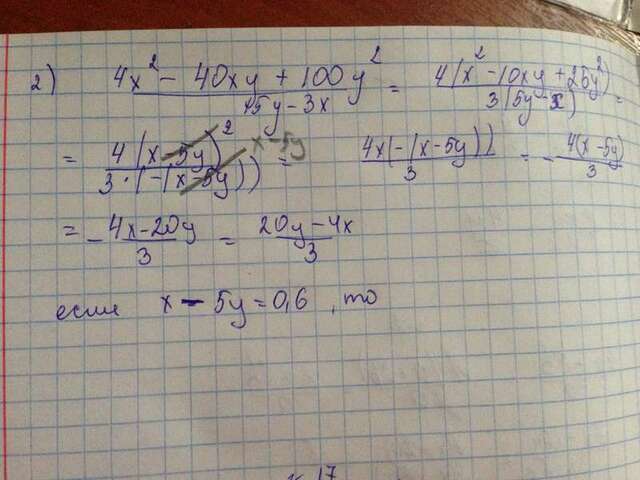 2) 4x² - 40xy + 100y² / 15y - 3x = 4(x² - 10xy + 25y²) / 3(5y - x) =
= 4(x - 5y)² / 3·(-(x - 5y)) x - 5y = 4x(-(x - 5y)) / 3 = - 4(x - 5y) / 3
= - 4x - 20y / 3 = 20y - 4x / 3
если x - 5y = 0,6, то